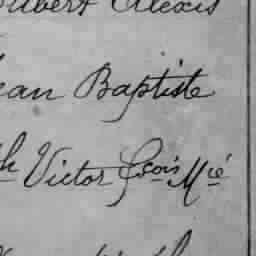 Hubert Alexis
Jean Baptiste
Victor fcois Mié